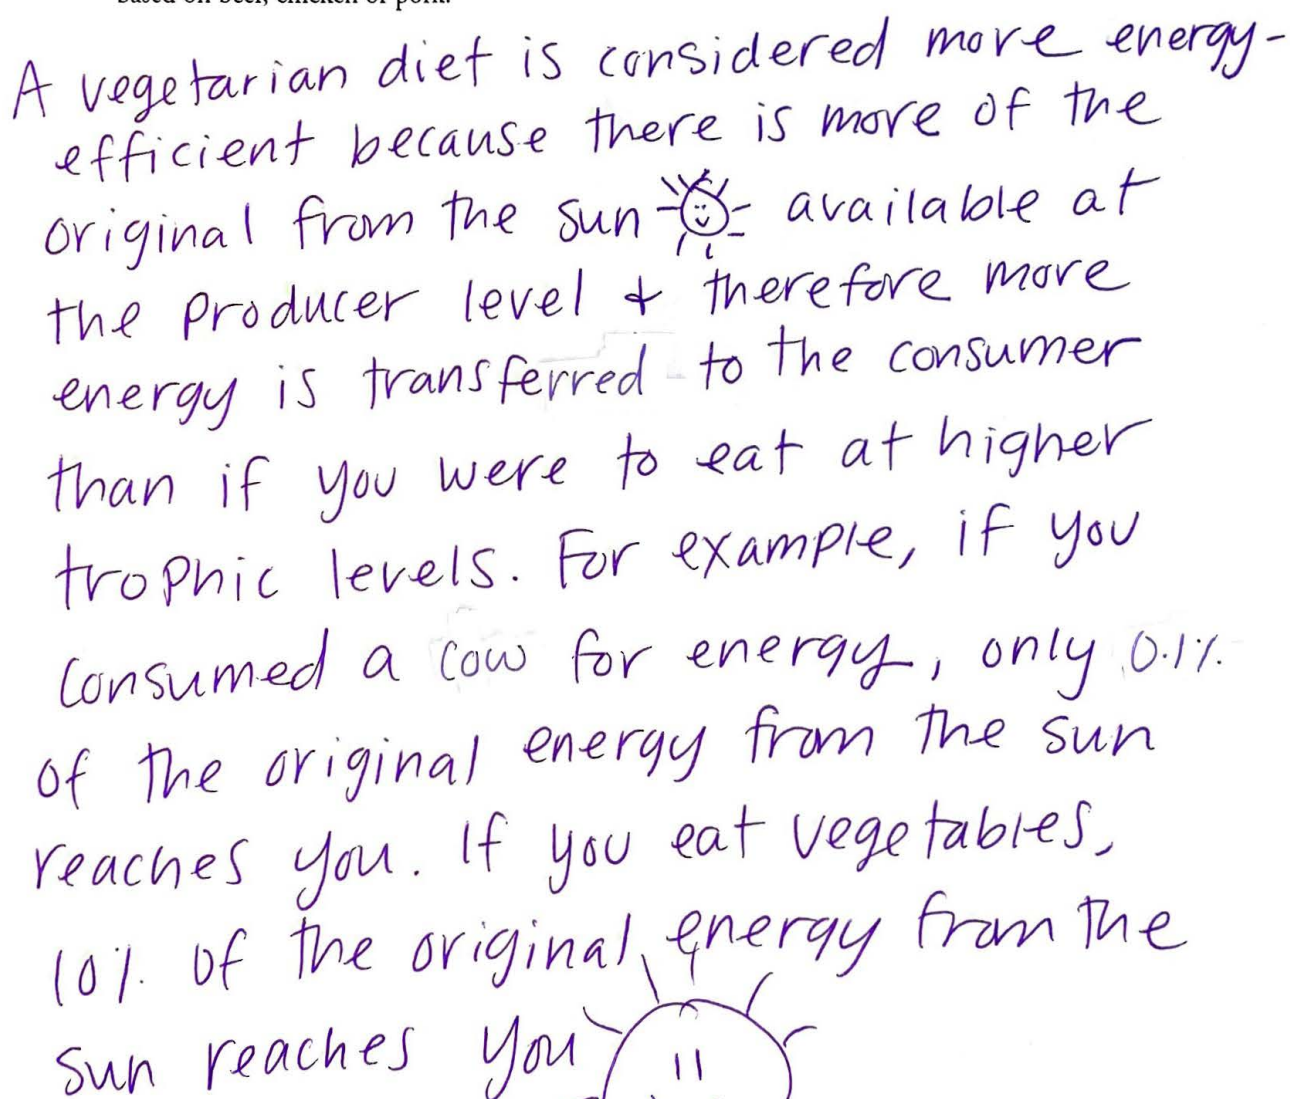 based on beef, chicken or pork.
A vegetarian diet is considered more energy-
efficient because there is more of the
original from the sun available at
the producer level + therefore more
energy is transferred to the consumer
than if you were to eat at higher
trophic levels. For example, if you
consumed a cow for energy, only 0.1%
of the original energy from the sun
reaches you. If you eat vegetables,
10% of the original energy from the
sun reaches you